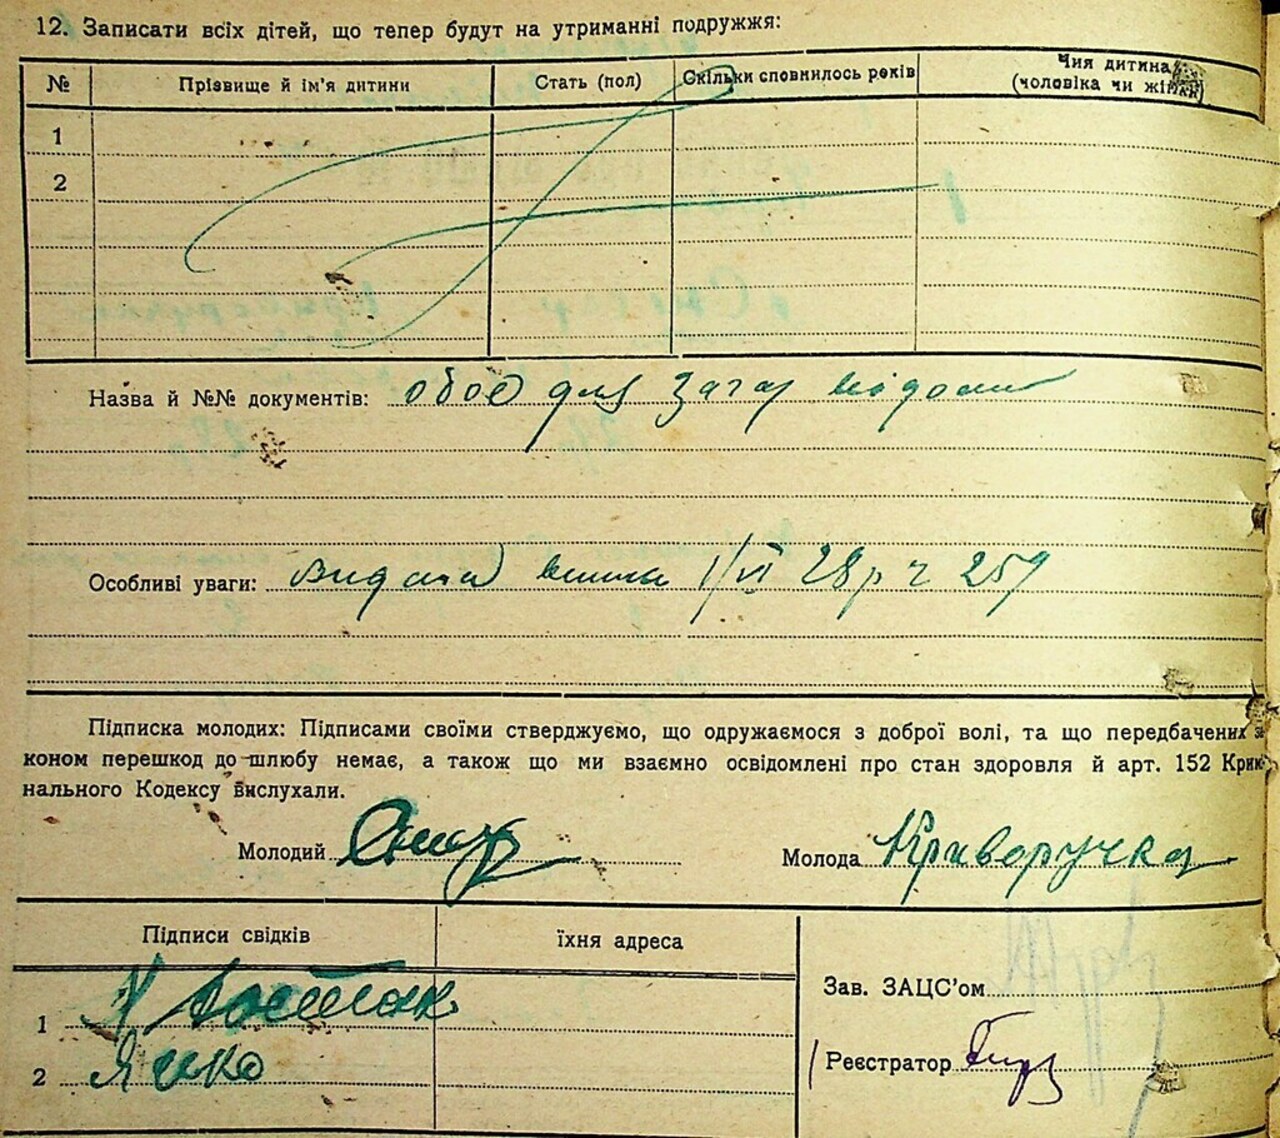 12. Записати всіх дітей, що тепер будут на утриманні подружжя:
№ Прізвище й ім'я дитини Стать (пол) Скільки сповнилось років Чия дитина
(чоловіка чи жінки)
1
2
Назва й №№ документів: обоє для загар
Особливі уваги: видана 1/VI 28 р ч 259
Підписка молодих: Підписами своїми стверджуємо, що одружаємося з доброї волі, та що передбачених
коном перешкод до шлюбу немає, а також що ми взаємно освідомлені про стан здоровля й арт. 152 Крим
нального Кодексу вислухали.
Молодий Молода Криворучка
Підписи свідків їхня адреса
Зав. ЗАЦС'ом
1
Реєстратор
2 Ячко